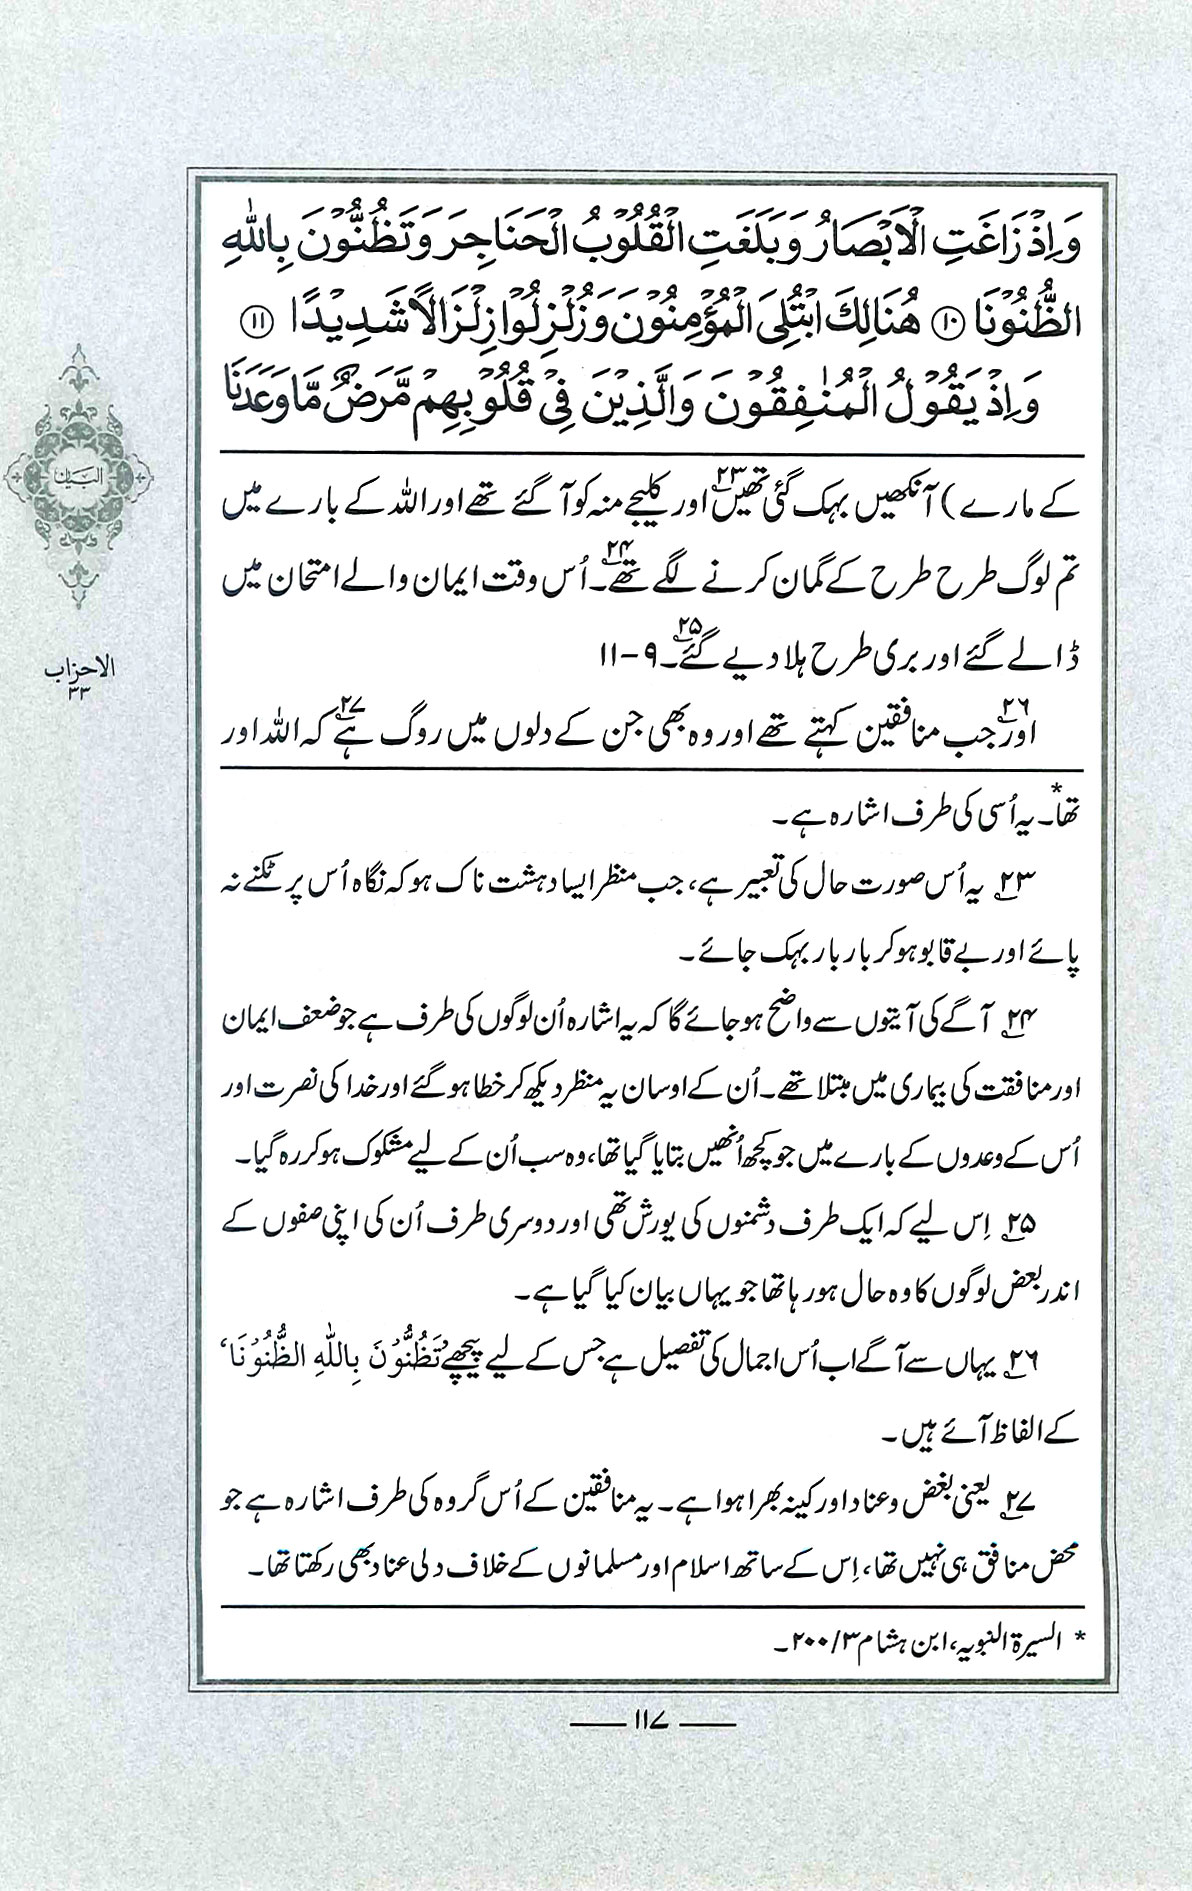 وَاِذْ زَاغَتِ الْاَبْصَارُ وَبَلَغَتِ الْقُلُوْبُ الْحَنَاجِرَ وَتَظُنُّوْنَ بِاللّٰهِ
الظُّنُوْنَا ﴿۱۰﴾ هُنَالِكَ ابْتُلِیَ الْمُؤْمِنُوْنَ وَزُلْزِلُوْا زِلْزَالًا شَدِیْدًا ﴿۱۱﴾
وَاِذْ یَقُوْلُ الْمُنٰفِقُوْنَ وَالَّذِیْنَ فِیْ قُلُوْبِهِمْ مَّرَضٌ مَّا وَعَدَنَا
کے مارے) آنکھیں بہک گئی تھیں۲۳ اور کلیجے منہ کو آ گئے تھے اور اللہ کے بارے میں
تم لوگ طرح طرح کے گمان کرنے لگے تھے۲۴۔ اُس وقت ایمان والے امتحان میں
ڈالے گئے اور بری طرح ہلا دیے گئے۲۵۔ ۹-۱۱
اور۲۶ جب منافقین کہتے تھے اور وہ بھی جن کے دلوں میں روگ ہے۲۷ کہ اللہ اور
تھا*۔ یہ اُسی کی طرف اشارہ ہے۔
۲۳ یہ اُس صورت حال کی تعبیر ہے، جب منظر ایسا دہشت ناک ہو کہ نگاہ اُس پر ٹکنے نہ
پائے اور بے قابو ہو کر بار بار بہک جائے۔
۲۴ آگے کی آیتوں سے واضح ہو جائے گا کہ یہ اشارہ اُن لوگوں کی طرف ہے جو ضعف ایمان
اور منافقت کی بیماری میں مبتلا تھے۔ اُن کے اوسان یہ منظر دیکھ کر خطا ہو گئے اور خدا کی نصرت اور
اُس کے وعدوں کے بارے میں جو کچھ اُنھیں بتایا گیا تھا، وہ سب اُن کے لیے مشکوک ہو کر رہ گیا۔
۲۵ اِس لیے کہ ایک طرف دشمنوں کی یورش تھی اور دوسری طرف اُن کی اپنی صفوں کے
اندر بعض لوگوں کا وہ حال ہو رہا تھا جو یہاں بیان کیا گیا ہے۔
۲۶ یہاں سے آگے اب اُس اجمال کی تفصیل ہے جس کے لیے پیچھے ’تَظُنُّوْنَ بِاللّٰهِ الظُّنُوْنَا‘
کے الفاظ آئے ہیں۔
۲۷ یعنی بغض و عناد اور کینہ بھرا ہوا ہے۔ یہ منافقین کے اُس گروہ کی طرف اشارہ ہے جو
محض منافق ہی نہیں تھا، اِس کے ساتھ اسلام اور مسلمانوں کے خلاف دلی عناد بھی رکھتا تھا۔
* السیرۃ النبویہ، ابن ہشام ۳/۲۰۰۔
البیان
الاحزاب
۳۳
۱۱۷